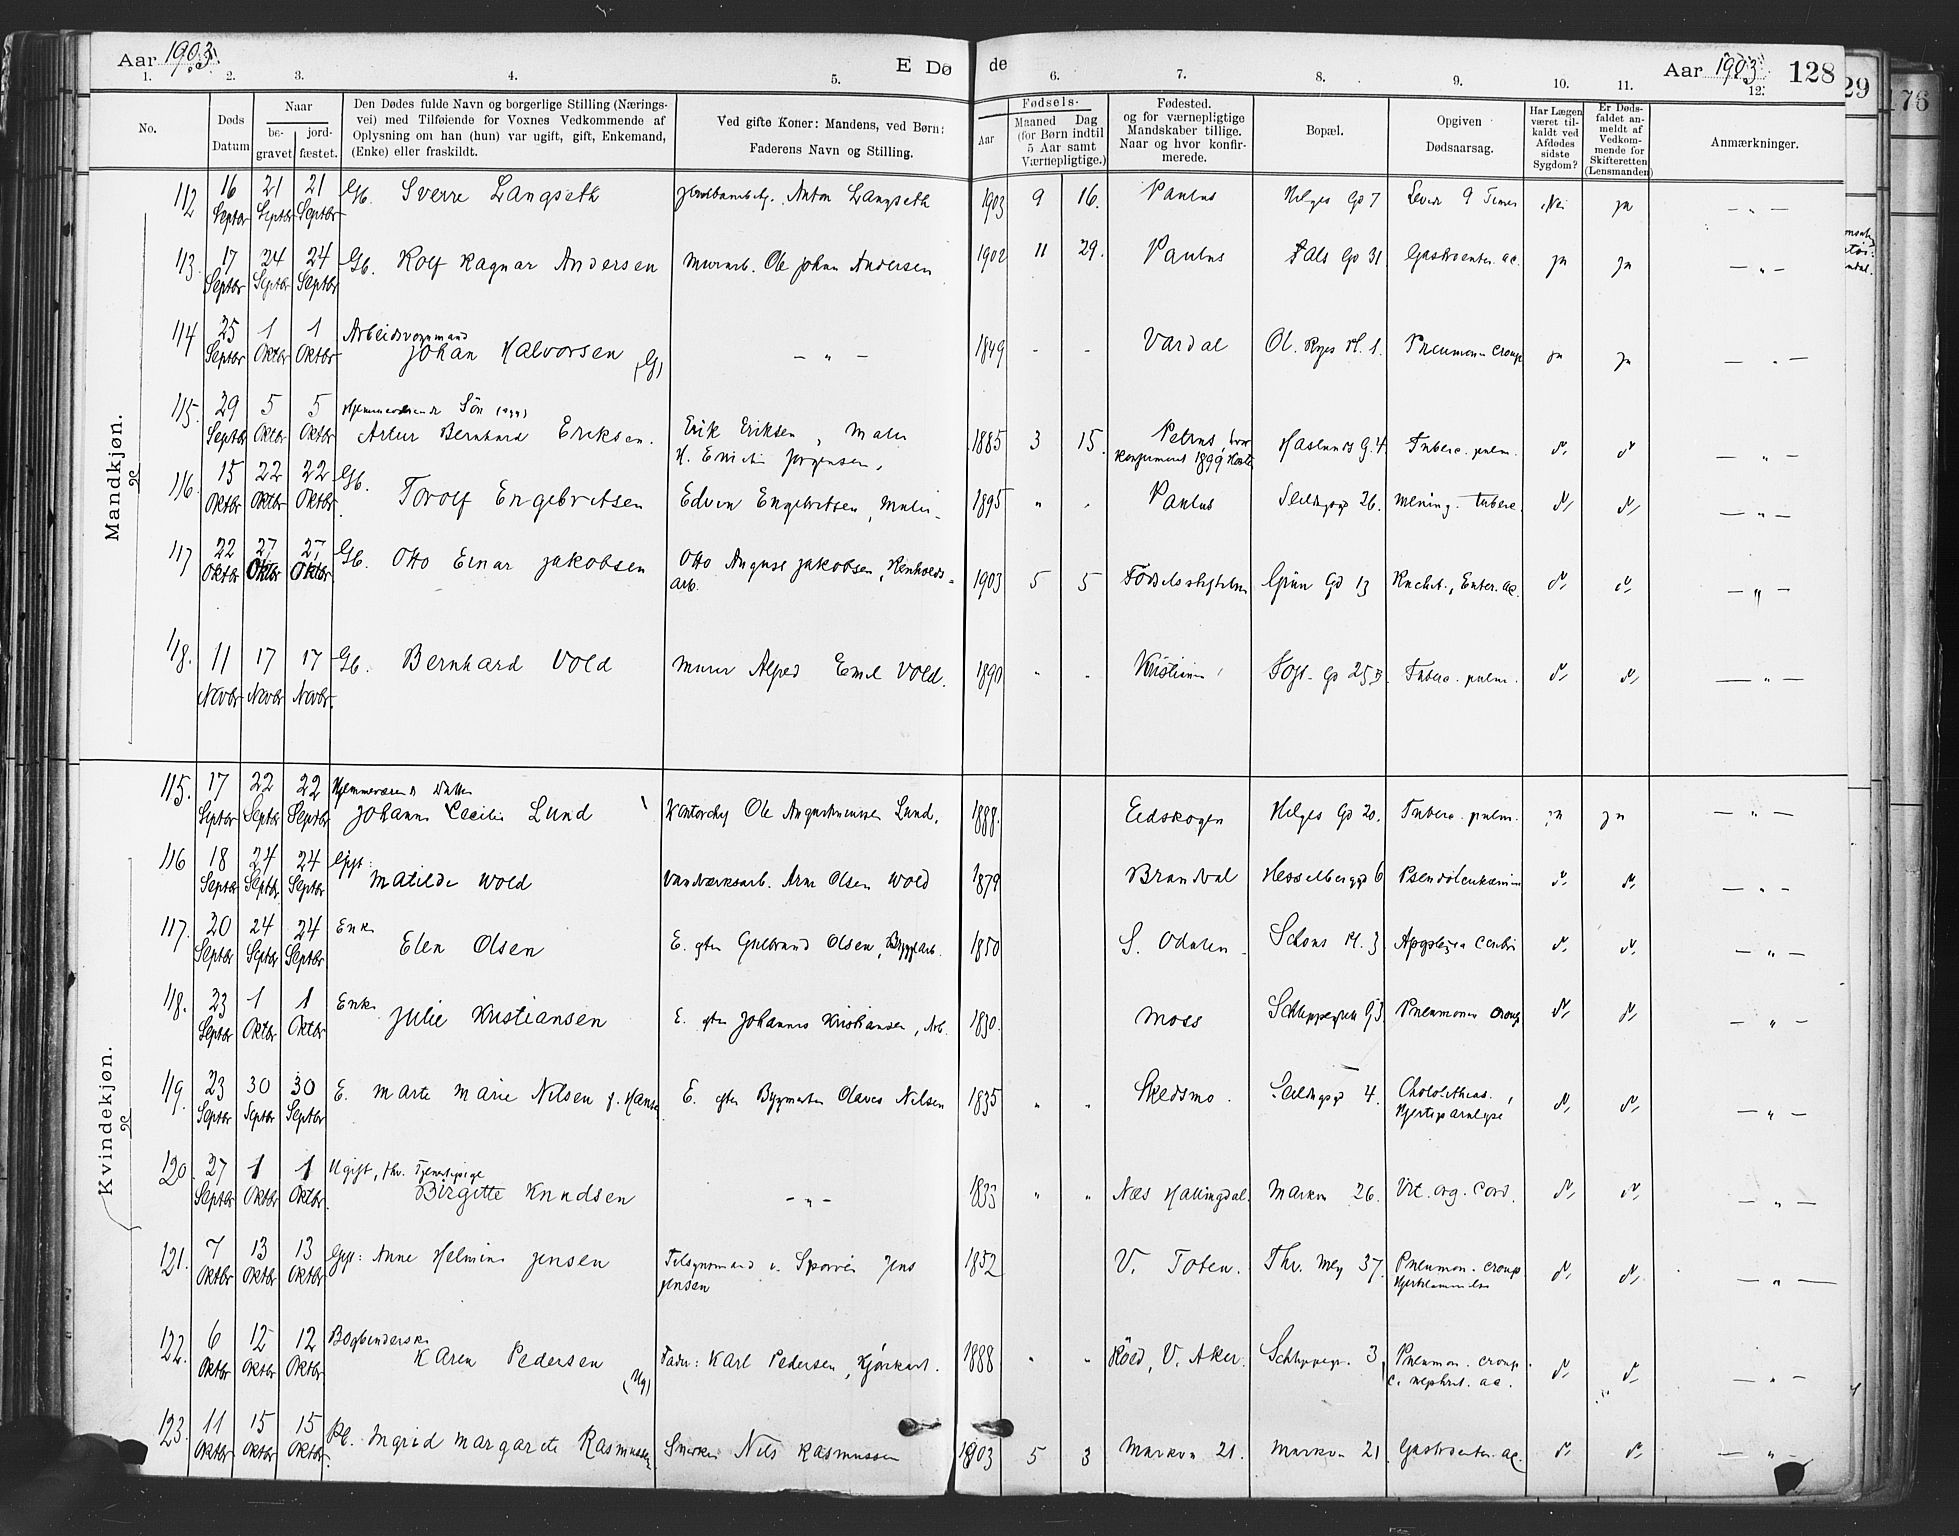 Aar 1903.
E Dø
de
Aar 1903.
128
29
176
1.
2.
3.
4.
5.
6.
7.
8.
9.
10.
11.
12.
No.
Døds Datum
Naar
be-gravet
jord-fæstet.
Den Dødes fulde Navn og borgerlige Stilling (Nærings-
vei) med Tilføiende for Voxnes Vedkommende af
Oplysning om han (hun) var ugift, gift, Enkemand,
(Enke) eller fraskildt.
Ved gifte Koner: Mandens, ved Børn:
Faderens Navn og Stilling.
Fødsels-
Aar
Maaned Dag
(for Børn indtil
5 Aar samt
Værnepligtige.)
Fødested.
og for værnepligtige
Mandskaber tillige.
Naar og hvor konfir-
merede.
Bopæl.
Opgiven
Dødsaarsag.
Har Lægen
været til-
kaldt ved
Afdødes
sidste
Sygdom?
Er Døds-
faldet an-
meldt af
Vedkom-
mende for
Skifteretten
(Lensmanden)
Anmærkninger.
Mandkjøn.
112 16 Septbr 21 Septbr 21 Septbr Gb. Sverre Langseth Anton Langseth 1903 9 16. Paulus Helges Gd 7 Levede 9 Timer Nei ja — „ —
113. 17 Septbr 24 Septbr 24 Septbr Gb. Rolf Ragnar Andersen Murarb. Ole Johan Andersen 1902 11 29. Paulus Fals Gd 31 Gastroenter. ac. ja ja — „ —
114 25 Septbr 1 Oktbr 1 Oktbr Arbeidsformand
Johan Halvorsen (G) — „ — 1849 - - Vardal Ol. Ryes Pl. 1. Pneumoni croup ja ja — „ —
115. 29 Septbr 5 Oktbr 5 Oktbr Hjemmeværende Søn (ug)
Artur Bernhard Eriksen. Erik Eriksen, Maler 1885 3 15. Petrus, hvor
konfirmert 1899 Høst Haslunds G. 4. Tuberc. pulm. d. d. — „ —
116. 15 Oktbr 22 Oktbr 22 Oktbr Gb. Torolf Engebritsen Edvin Engebritsen, Maler 1895 „ „ Paulus Seildugsg 26. Mening. tuberc. d. d. — „ —
117 22 Oktbr 27 Oktbr 27 Oktbr Gb. Otto Einar Jakobsen Otto August Jakobsen, Renholds-
arb. 1903 5 5 Fødselsstiftelsen Grün Gd 13 Rachit., Enter. ac. d. d. — „ —
118. 11 Novbr 17 Novbr 17 Novbr Gb. Bernhard Vold Murer Alfred Emil Vold. 1890 „ „ Kristiania Fogt. Gd 25 B Tuberc. pulm. d. d. — „ —
Kvindekjøn.
115. 17 Septbr 22 Septbr 22 Septbr Hjemmeværende Datter
Johanne Cecilie Lund Kontorchef Ole Augustinussen Lund. 1888. Eidskogen Helges Gd 20. Tuberc. pulm. ja ja — „ —
116 18 Septbr 24 Septbr 24 Septbr Gift:
Matilde Wold Vandværksarb. Arne Olsen Wold 1879 Brandval Hesselbergsg 6 Pseudoleukæmi d. d. — „ —
117. 20 Septbr 24 Septbr 24 Septbr Enke
Elen Olsen E. efter Gulbrand Olsen, Bryggearb. 1850 S. Odalen Schous Pl. 3 Apoplexia cerebri d. d. — „ —
118. 23 Septbr 1 Oktbr 1 Oktbr Enke
Julie Kristiansen E. efter Johannes Kristiansen, Arb. 1830. Moss Schleppegrells G 3 Pneumoni croup d. d. — „ —
119. 23 Septbr 30 Septbr 30 Septbr E. Marte Marie Nilsen f. Hansen E. efter Bygmester Olaves Nilsen 1835 „ „ Skedsmo. Seildugsg 4. Chololithias.,
Hjerteparalyse d. d. — „ —
120. 27 Septbr 1 Oktbr 1 Oktbr Ugift, fhv. Tjenestepige
Birgitte Knudsen — „ — 1833 „ „ Næs Hallingdal. Markvn 26. Vit. org. Cord. d. d. — „ —
121. 7 Oktbr 13 Oktbr 13 Oktbr Gift: Anne Helmine Jensen Tilsynsmand v. Sporvei Jens
Jensen 1852 V. Toten. Thv. Mey 37. Pneumon. croup.
Hjertelammelse d. d. — „ —
122. 6 Oktbr 12 Oktbr 12 Oktbr Bogbinderske
Karen Pedersen (Ug) Fader: Karl Pedersen, Kjørekarl. 1888 „ „ Röed, V. Aker. Schleppegr. 3, Pneumon. croup.
c. nephrit. ac. d. d. — „ —
123. 11 Oktbr 15 Oktbr 15 Oktbr Pb. Ingrid Margarete Rasmussen Snekker Nils Rasmussen 1903 5 3 Markvn 21. Markvn 21 Gastroenter. ac. d. d. — „ —